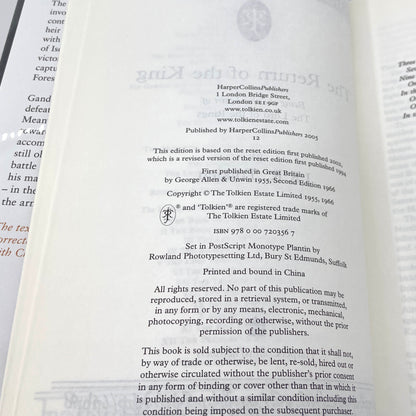 The
invo
cont
heir
with
of Is
victo
captu
Fores
Gand
defeat
Mean
towar
accom
still ol
battle
his ma
– in the
the arr
The tex
correcte
with Co
HarperCollinsPublishers
1 London Bridge Street,
London SE1 9GF
www.tolkien.co.uk
www.tolkienestate.com
Published by HarperCollinsPublishers 2005
12
This edition is based on the reset edition first published 2002,
which is a revised version of the reset edition first published 1994
First published in Great Britain
by George Allen & Unwin 1955, Second Edition 1966
Copyright © The Tolkien Estate Limited 1955, 1966
® and ‘Tolkien’® are registered trade marks of
The Tolkien Estate Limited
ISBN 978 0 00 720356 7
Set in PostScript Monotype Plantin by
Rowland Phototypesetting Ltd, Bury St Edmunds, Suffolk
Printed and bound in China
All rights reserved. No part of this publication may be
reproduced, stored in a retrieval system, or transmitted,
in any form or by any means, electronic, mechanical,
photocopying, recording or otherwise, without the prior
permission of the publishers.
This book is sold subject to the condition that it shall not,
by way of trade or otherwise, be lent, re-sold, hired out or
otherwise circulated without the publisher's prior consent
in any form of binding or cover other than that in which it
is published and without a similar condition including this
condition being imposed on the subsequent purchaser.
The Return of the King
Three
Sev
Nine
On
In th
O
In
In th